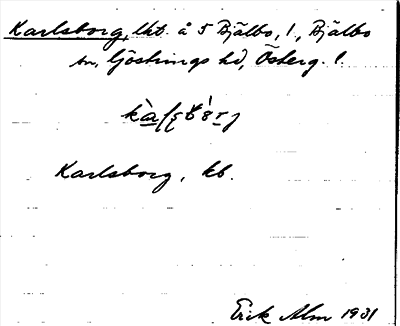 Karlsborg, lht. å 5 Bjälbo, 1, Bjälbo
sn, Göstrings hd, Österg. l.
Karlsborg, kb.
Erik Alm 1931